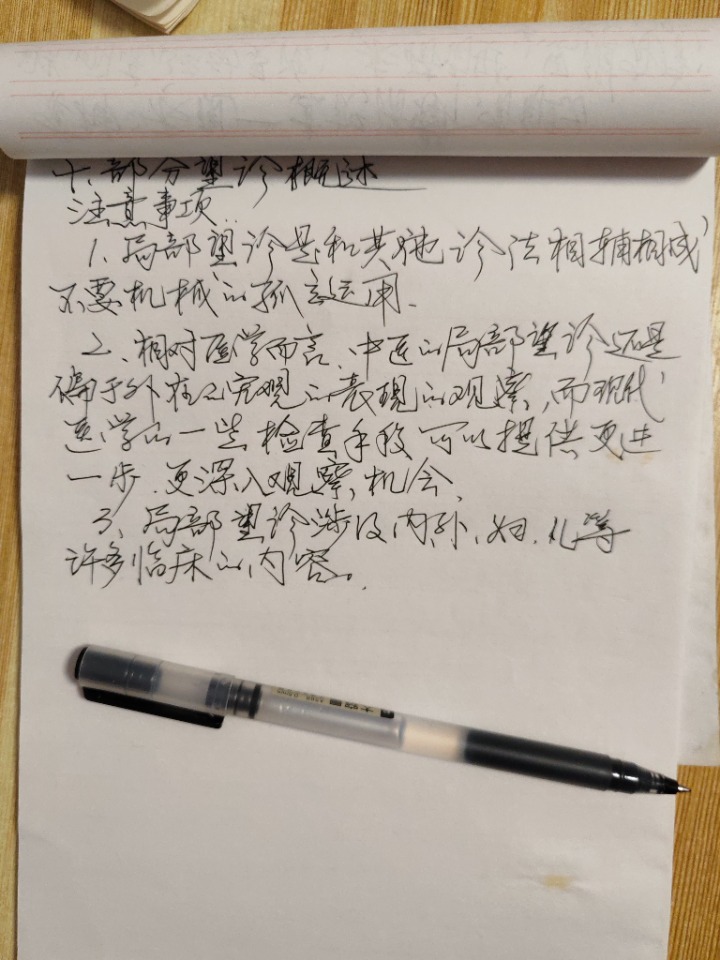 十、部分望诊概述
注意事项
1、局部望诊是和其他诊法相辅相成,
不要机械的孤立运用、
2、相对医学而言、中医的局部望诊还是
偏于外在的宏观的表现的观察,而现代
医学的一些检查手段可以提供更进
一步、更深入观察机会、
3、局部望诊涉及内、外、妇、儿等
许多临床的内容。